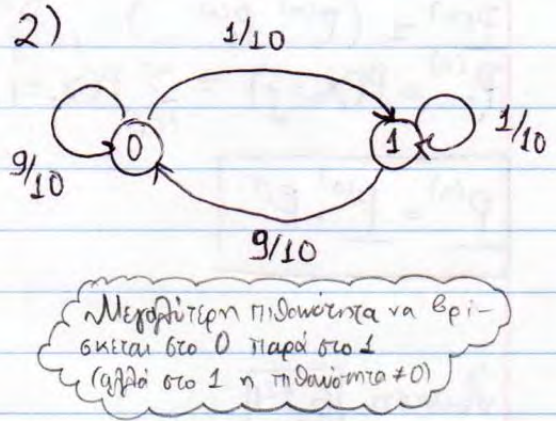 2)
1/10
9/10
0
1
1/10
9/10
Μεγαλύτερη πιθανότητα να βρί-
σκεται στο 0 παρά στο 1
(αλλά στο 1 η πιθανότητα ≠0)